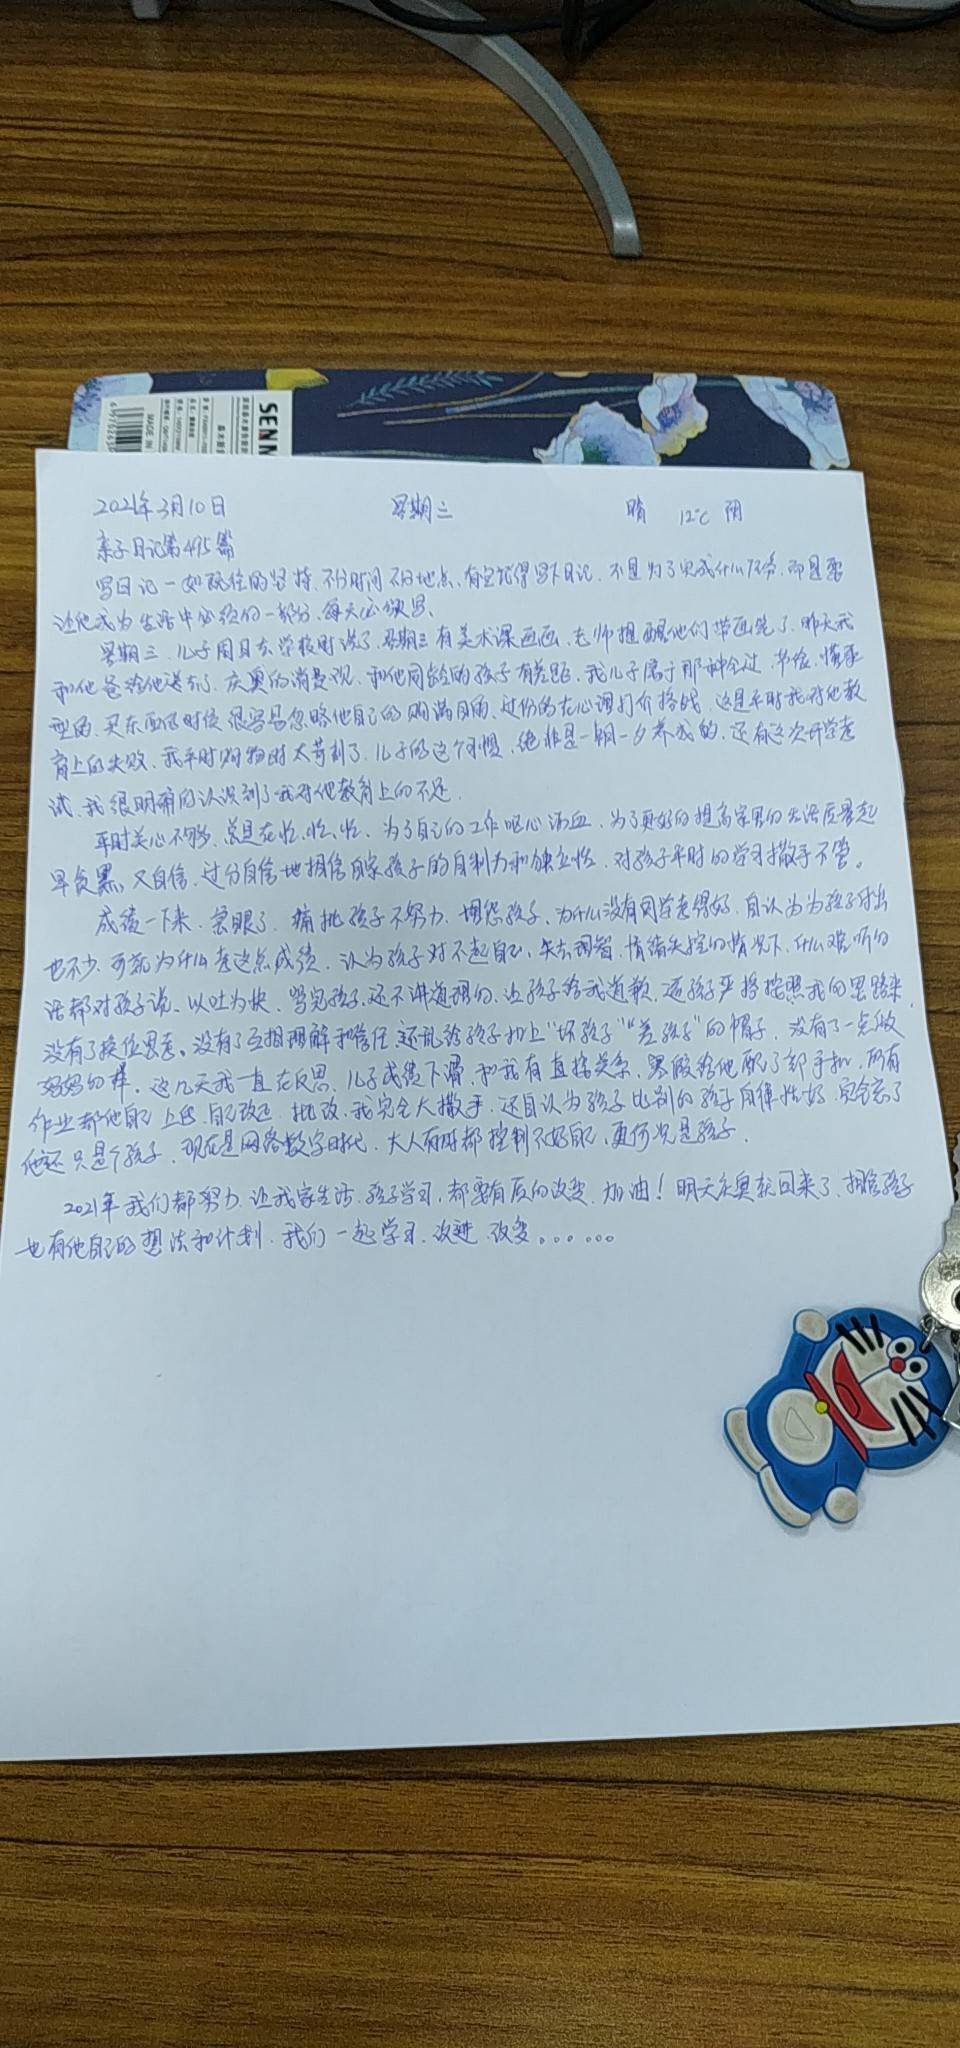 SENN
MADE IN
2021年3月10日 星期三 晴 12℃ 阴
亲子日记第495篇
写日记一如既往的坚持,不分时间不分地点,有空就得写下日记,不是为了完成什么任务,而是要
让他成为生活中必须的一部分,每天必须写、
星期三,儿子周日去学校时说了,星期三有美术课画画,老师提醒他们带画笔了,昨天我
和他爸给他送去了,庆奥的消费观,和他同龄的孩子有差距,我儿子属于那种会过,节俭,
型的,买东西的时候很容易忽略他自己的购满目的,过份的在心理打价格战,这是平时我对他教
育上的失败,我平时购物时太苛刻了,儿子的这个习惯,绝非是一朝一夕养成的,还有这次开学考
试,我很明确的认识到了我对他教育上的不足.
平时关心不够,总是在忙、忙、忙、为了自己的工作呕心沥血,为了更好的提高家里的生活质量起
早贪黑,又自信,过分自信地相信自家孩子的自制力和独立性,对孩子平时的学习撒手不管。
成绩一下来,急眼了,痛批孩子不努力,埋怨孩子,为什么没有同学考得好,自认为为孩子付出
也不少,可就为什么考这点成绩,认为孩子对不起自己,失去理智,情绪失控的情况下,什么难听的
话都对孩子说、以吐为快,骂完孩子,还不讲道理的,让孩子给我道歉,逼孩子严格按照我的思路来,
没有了换位思考、没有了互相理解和信任,还乱给孩子扣上“坏孩子”“差孩子”的帽子,没有了一点做
妈妈的样,这几天我一直在反思,儿子成绩下滑,和我有直接关系,寒假给他配了部手机,所有
作业都他自己上传,自己改正,批改,我完全大撒手,还自认为孩子比别的孩子自律性好,完全忘了
他还只是个孩子,现在是网络数字时代,大人有时都控制不好自己,更何况是孩子.
2021年我们都努力,让我家生活,孩子学习,都要有质的改变,加油!明天庆奥就回来了,相信孩子
也有他自己的想法和计划,我们一起学习,改进,改变。。。。。。